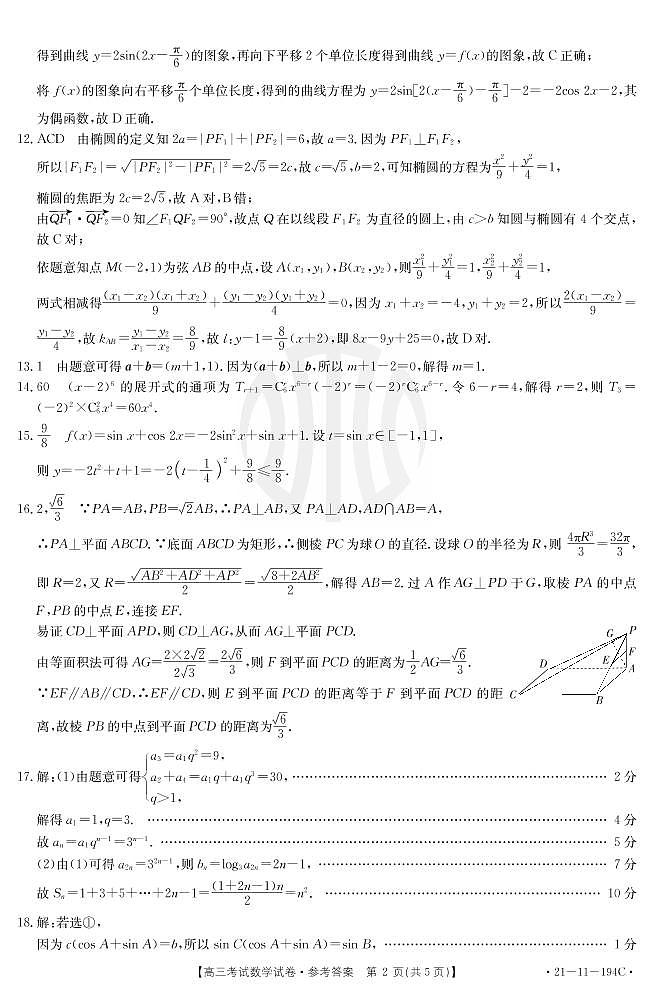 得到曲线 y=2sin(2x−π/6)的图象,再向下平移 2 个单位长度得到曲线 y=f(x)的图象,故 C 正确;
将 f(x)的图象向右平移π/6个单位长度,得到的曲线方程为 y=2sin[2(x−π/6)−π/6]−2=−2cos 2x−2,其
为偶函数,故 D 正确.
12. ACD 由椭圆的定义知 2a=|PF₁|+|PF₂|=6,故 a=3. 因为 PF₁⊥F₁F₂,
所以|F₁F₂|=√(|PF₂|²−|PF₁|²)=2√5=2c,故 c=√5,b=2,可知椭圆的方程为x²/9+y²/4=1,
椭圆的焦距为 2c=2√5,故 A 对,B 错;
由QF₁·QF₂=0 知∠F₁QF₂=90°,故点 Q 在以线段 F₁F₂ 为直径的圆上,由 c>b 知圆与椭圆有 4 个交点,
故 C 对;
依题意知点 M(−2,1)为弦 AB 的中点,设 A(x₁,y₁),B(x₂,y₂),则x₁²/9+y₁²/4=1,x₂²/9+y₂²/4=1,
两式相减得(x₁−x₂)(x₁+x₂)/9+(y₁−y₂)(y₁+y₂)/4=0,因为 x₁+x₂=−4,y₁+y₂=2,所以2(x₁−x₂)/9=
(y₁−y₂)/4,故 k_AB=(y₁−y₂)/(x₁−x₂)=8/9,故 l:y−1=8/9(x+2),即 8x−9y+25=0,故 D 对.
13. 1 由题意可得 a+b=(m+1,1). 因为(a+b)⊥b,所以 m+1−2=0,解得 m=1.
14. 60 (x−2)⁶ 的展开式的通项为 T_{r+1}=C₆^r x^{6−r}(−2)^r=(−2)^r C₆^r x^{6−r}. 令 6−r=4,解得 r=2,则 T₃=
(−2)²×C₆²x⁴=60x⁴.
15. 9/8 f(x)=sin x+cos 2x=−2sin²x+sin x+1. 设 t=sin x∈[−1,1],
则 y=−2t²+t+1=−2(t−1/4)²+9/8≤9/8.
16. 2,√6/3 ∵PA=AB,PB=√2AB,∴PA⊥AB,又 PA⊥AD,AD∩AB=A,
∴PA⊥平面 ABCD. ∵底面 ABCD 为矩形,∴侧棱 PC 为球 O 的直径. 设球 O 的半径为 R,则 4πR³/3=32π/3,
即 R=2,又 R=√(AB²+AD²+AP²)/2=√(8+2AB²)/2,解得 AB=2. 过 A 作 AG⊥PD 于 G,取棱 PA 的中点
F,PB 的中点 E,连接 EF.
易证 CD⊥平面 APD,则 CD⊥AG,从而 AG⊥平面 PCD.
由等面积法可得 AG=2×2√2/2√3=2√6/3,则 F 到平面 PCD 的距离为1/2AG=√6/3.
∵EF∥AB∥CD,∴EF∥CD,则 E 到平面 PCD 的距离等于 F 到平面 PCD 的距
离,故棱 PB 的中点到平面 PCD 的距离为√6/3.
G P
F
D E A
C B
17. 解:(1)由题意可得{a₃=a₁q²=9,
a₂+a₄=a₁q+a₁q³=30, …… 2 分
q>1,
解得 a₁=1,q=3. …… 4 分
故 aₙ=a₁qⁿ⁻¹=3ⁿ⁻¹. …… 5 分
(2)由(1)可得 a₂ₙ=3²ⁿ⁻¹,则 bₙ=log₃a₂ₙ=2n−1, …… 7 分
故 Sₙ=1+3+5+…+2n−1=(1+2n−1)n/2=n². …… 10 分
18. 解:若选①,
因为 c(cos A+sin A)=b,所以 sin C(cos A+sin A)=sin B, …… 1 分
【高三考试数学试卷·参考答案 第 2 页(共 5 页)】
·21−11−194C·